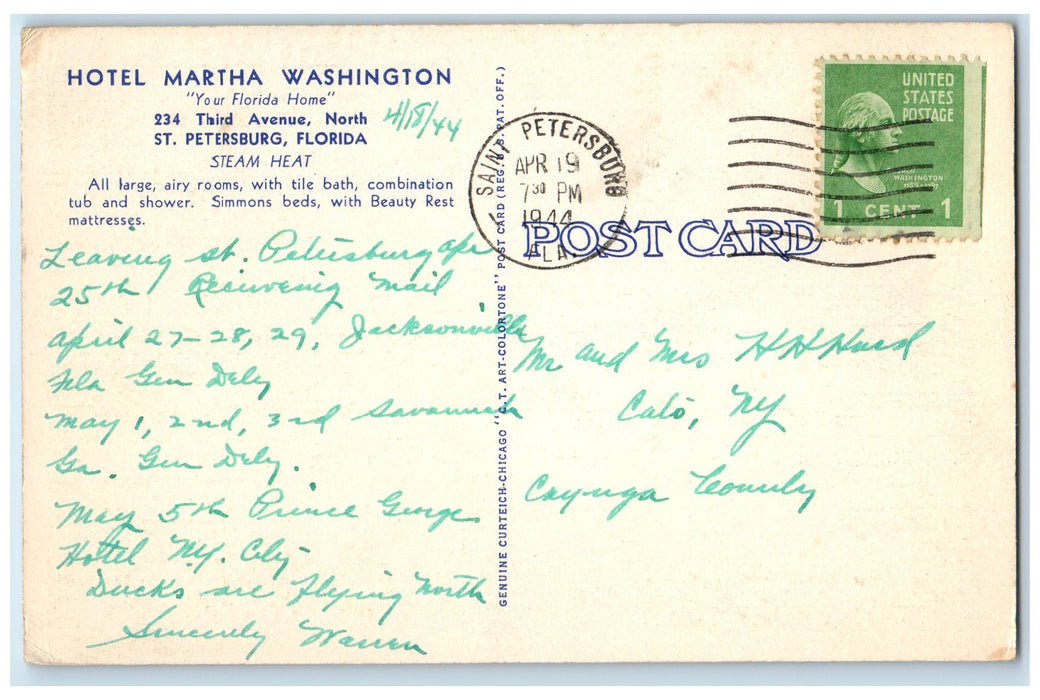 HOTEL MARTHA WASHINGTON
"Your Florida Home"
234 Third Avenue, North
ST. PETERSBURG, FLORIDA
STEAM HEAT
4/18/44
All large, airy rooms, with tile bath, combination
tub and shower. Simmons beds, with Beauty Rest
mattresses.
Leaving st. Petersburg apr
25th Receivering Mail
april 27-28, 29, Jacksonville
Fla Gen Dely
May 1, 2nd, 3rd Savannah
Ga. Gen Dely.
May 5th Prince George
Hotel N.Y. City
Ducks are flying North
Sincerely Warren
GENUINE CURTEICH-CHICAGO "C.T. ART-COLORTONE" POST CARD (REG. U.S. PAT. OFF.)
SAINT PETERSBURG
APR 19
7 30 PM
1944
FLA.
POST CARD
UNITED
STATES
POSTAGE
WASHINGTON
1 CENT 1
Mr and Mrs H H Hurd
Cato, NY
Cayuga County